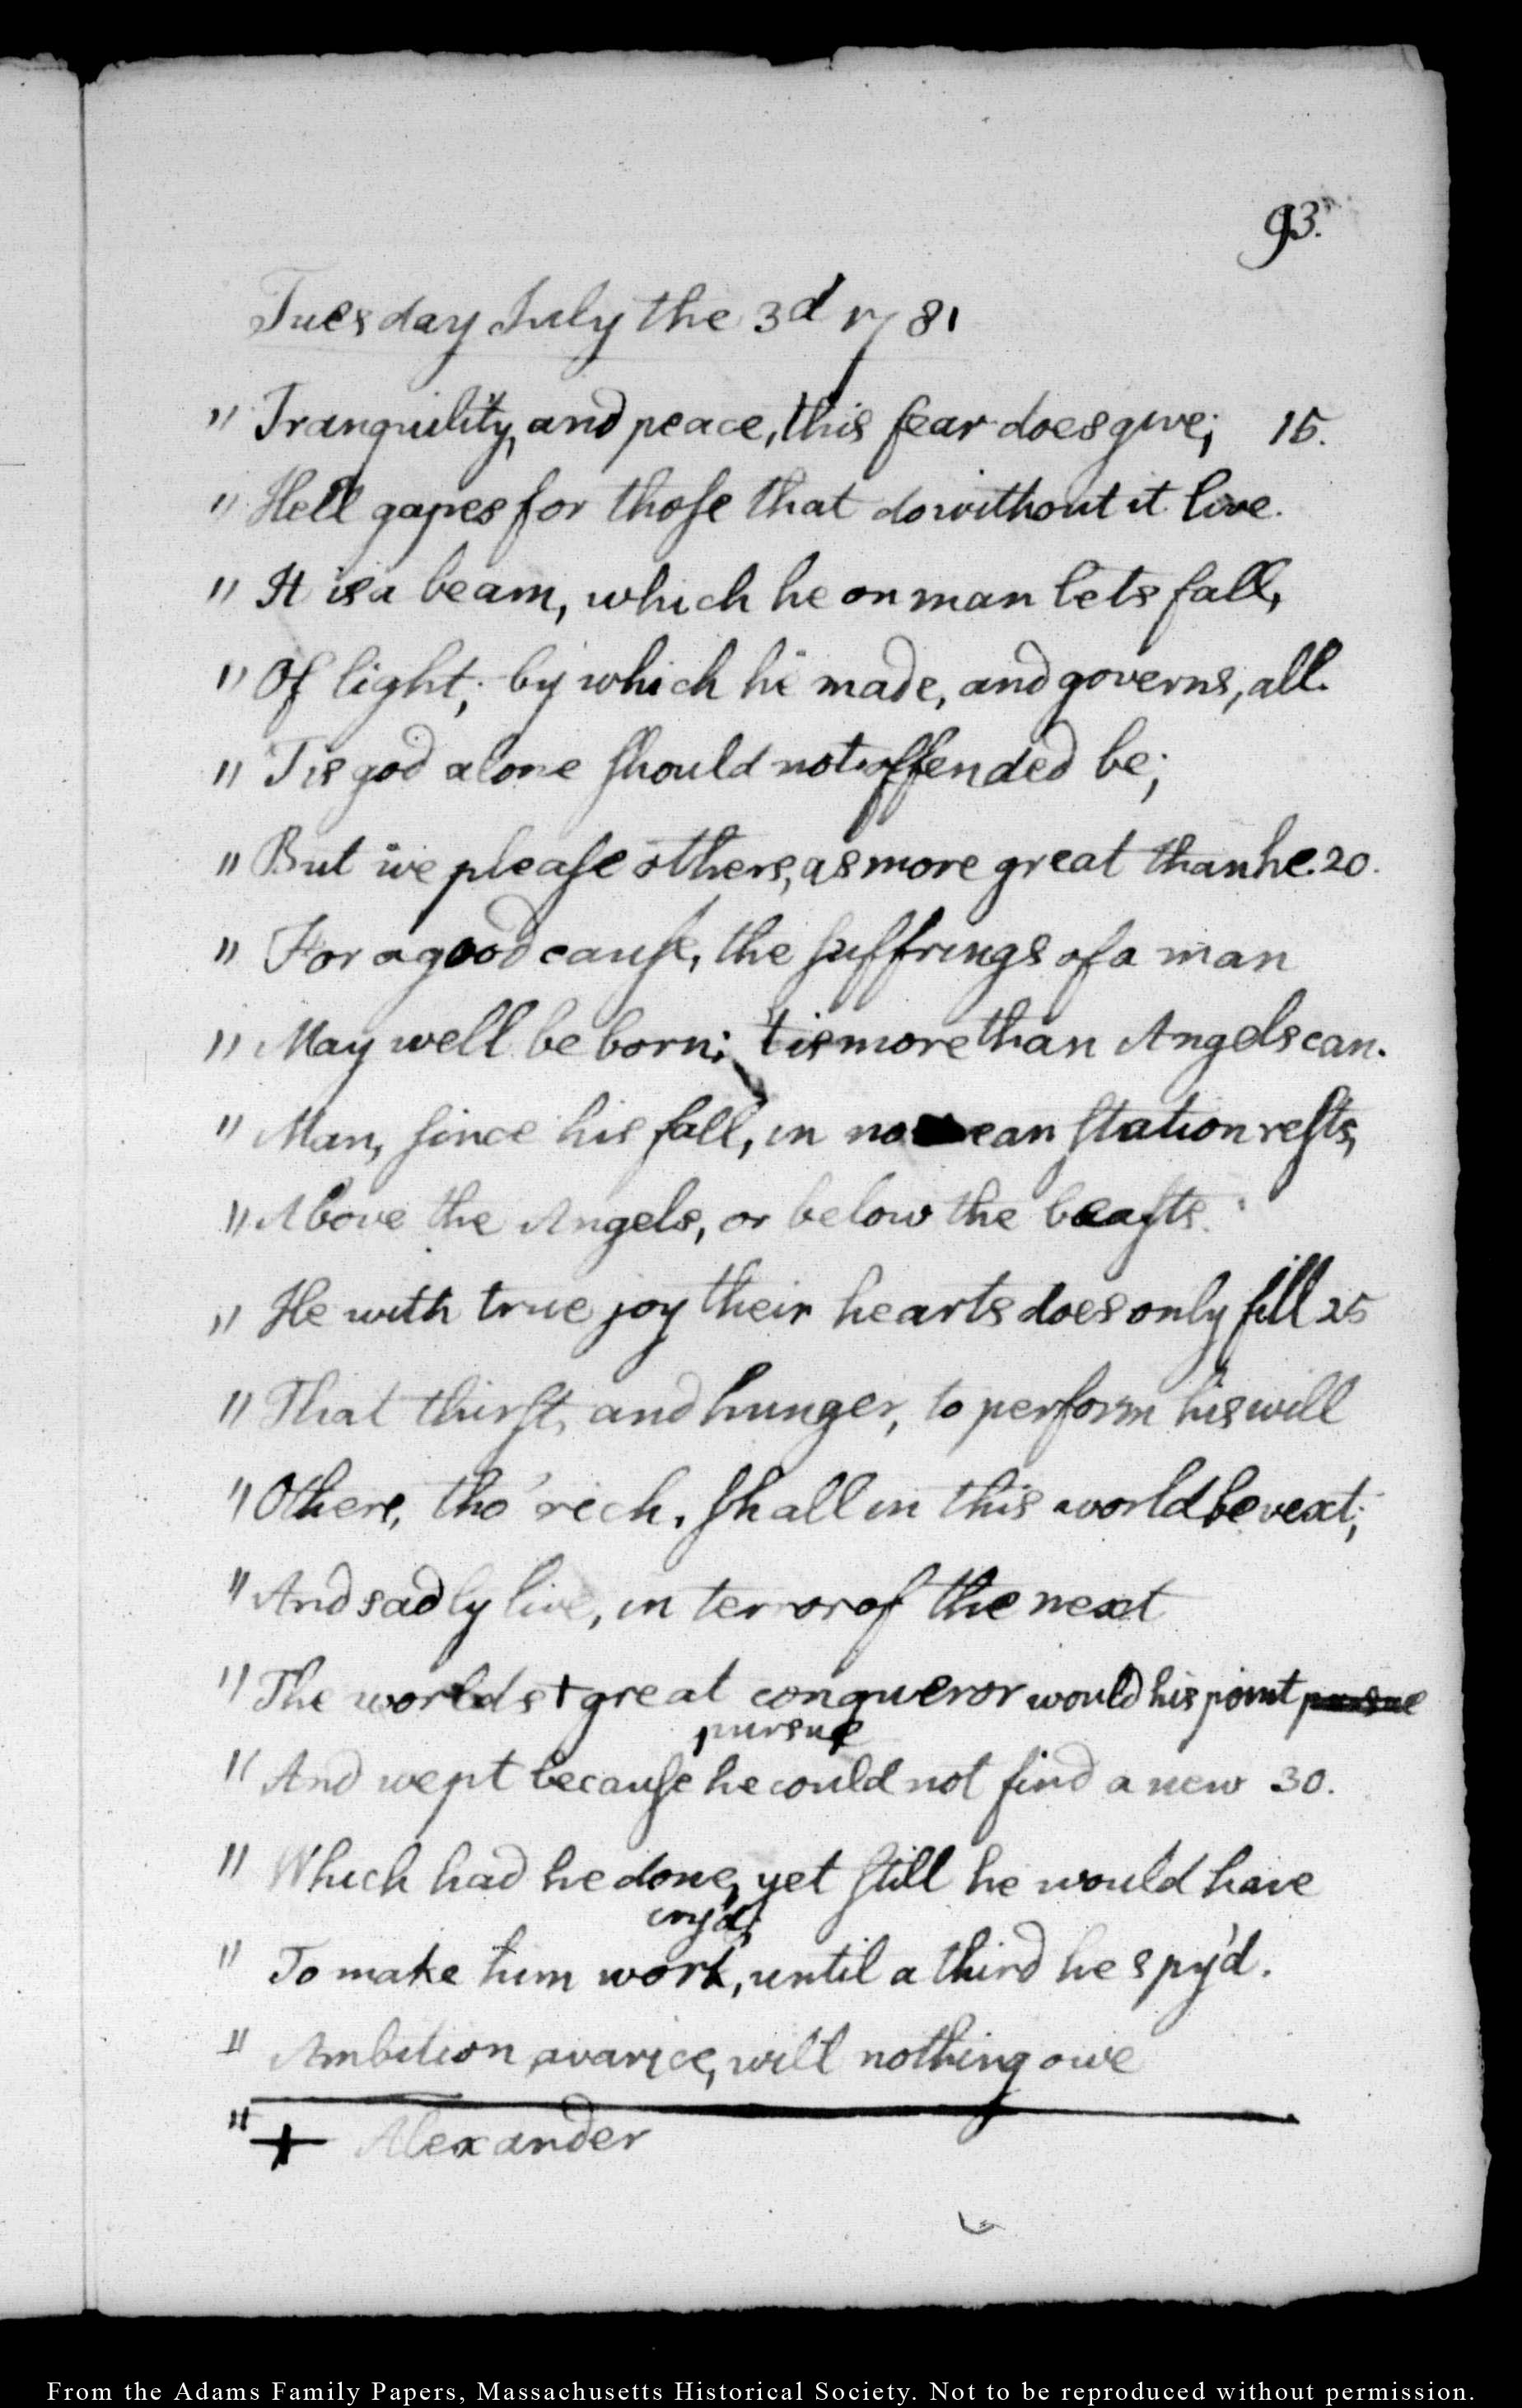 93.
Tuesday July the 3d 1781
" Tranquility, and peace, this fear does give; 15.
" Hell gapes for those that do without it live.
" It is a beam, which he on man lets fall,
" Of light; by which he made, and governs, all.
" Tis god alone should not offended be;
" But we please others, as more great than he. 20.
" For a good cause, the suffrings of a man
" May well be born; 'tis more than Angels can.
" Man, since his fall, in no mean station rests,
" Above the Angels, or below the beasts.
" He with true joy their hearts does only fill 25
" That thirst, and hunger, to perform his will
" Others, tho' rich, shall in this world be vext;
" And sadly live, in terror of the next
" The worlds + great conqueror would his point pursue
pursue
" And wept because he could not find a new 30.
" Which had he done, yet still he would have
cry'd,
" To make him work, until a third he spy'd.
" Ambition, avarice, will nothing owe
" + Alexander
From the Adams Family Papers, Massachusetts Historical Society. Not to be reproduced without permission.